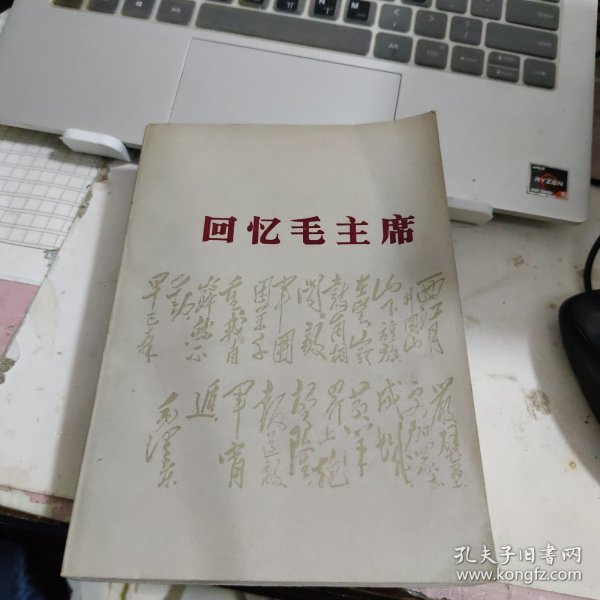 回忆毛主席
西江月
井冈山
山下旌旗
在望山头
鼓角相
闻。敌
军围
困万千
重我自
岿然不
动
早已森
严壁垒
更加众志
成城
黄洋
界上炮
声隆
报道敌
军宵
遁
毛泽东
RYZEN
孔夫子旧书网
www.kongfz.com